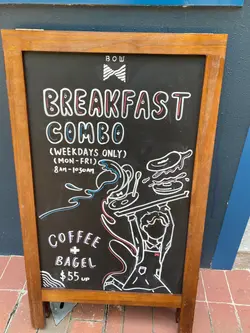 BOW
BREAKFAST
COMBO
(WEEKDAYS ONLY)
(MON-FRI)
8AM-10:30AM
COFFEE
+
BAGEL
$55 UP